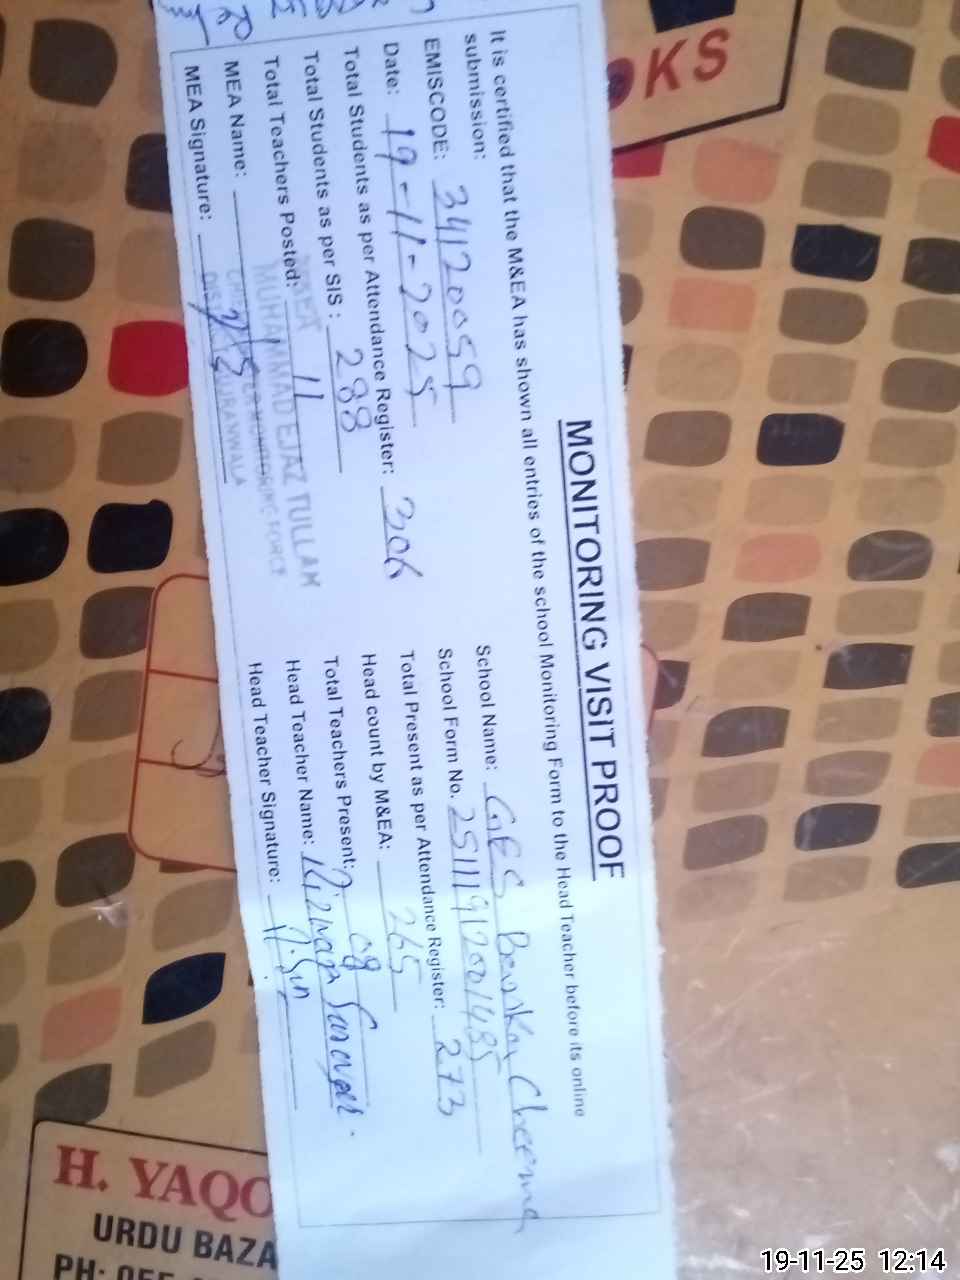 MONITORING VISIT PROOF
It is certified that the M&EA has shown all entries of the school Monitoring Form to the Head Teacher before its online
submission:
School Name: GES Cheema
EMISCODE: 34120059
School Form No. 25111912001485
Date: 19-11-2025
Total Present as per Attendance Register: 273
Total Students as per Attendance Register: 306
Head count by M&EA: 265
Total Students as per SIS : 288
Total Teachers Present: 09
Total Teachers Posted: 11
Head Teacher Name: Rizwan Sarwar.
MEA Name:
Head Teacher Signature:
MEA Signature:
MUHAMMAD EJAZ TULLAH
MONITORING FORCE
KS
H. YAQO
URDU BAZA
PH: 055
19-11-25 12:14